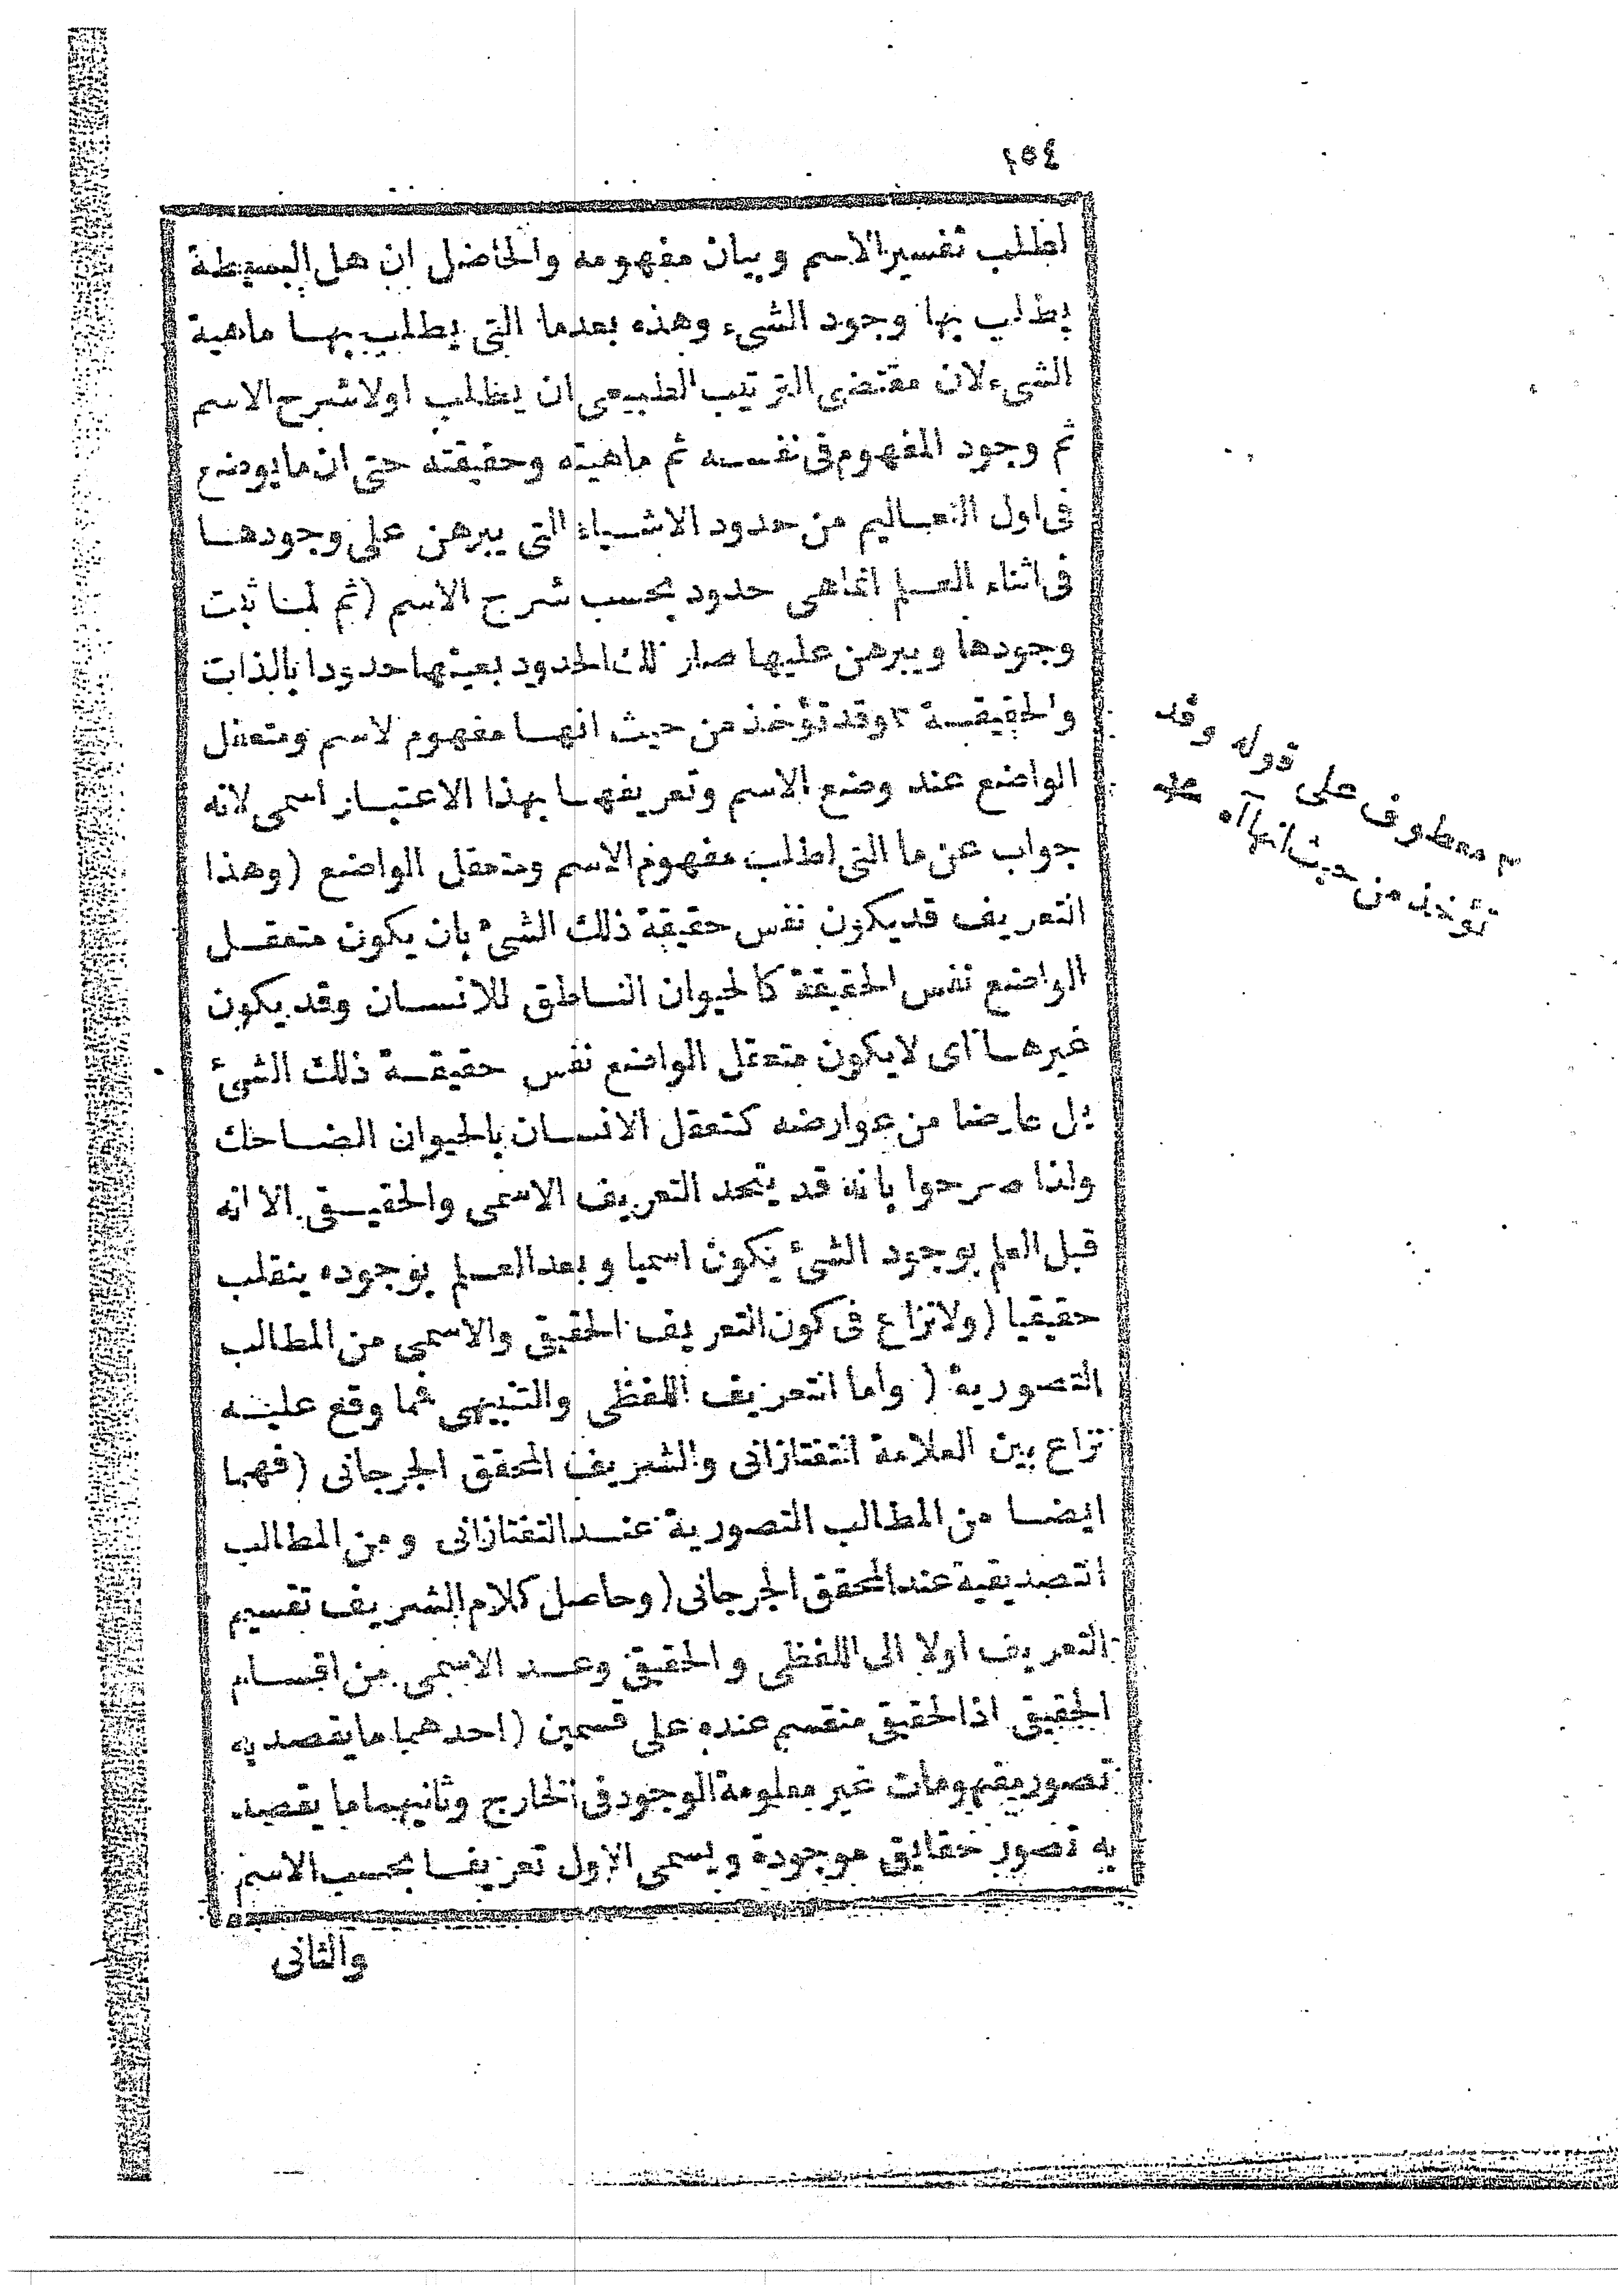 ٢٥٤
لطلب تفسير الاسم وبيان مفهومه والحاصل ان هل البسيطة
يطلب بها وجود الشىء وهذه بعدما التى يطلب بها ماهية
الشىء لان مقتضى الترتيب الطبيعى ان يطلب اولا شرح الاسم
ثم وجود المفهوم فى نفسه ثم ماهيته وحقيقته حتى ان ما يوضع
فى اول التعاليم من حدود الاشياء التى يبرهن على وجودها
فى اثناء العلم انماهى حدود بحسب شرح الاسم (ثم لما ثبت
وجودها ويبرهن عليها صار تلك الحدود بعينها حدودا بالذات
والحقيقة ٣ وقد تؤخذ من حيث انها مفهوم لاسم ومتعقل
الواضع عند وضع الاسم وتعريفها بهذا الاعتبار اسمى لانه
جواب عن ما التى لطلب مفهوم الاسم ومتعقل الواضع (وهذا
التعريف قديكون نفس حقيقة ذلك الشئ بان يكون متعقل
الواضع نفس الحقيقة كالحيوان الناطق للانسان وقديكون
غيرها اى لايكون متعقل الواضع نفس حقيقة ذلك الشئ
بل عارضا من عوارضه كتعقل الانسان بالحيوان الضاحك
ولذا صرحوا بانه قد يتحد التعريف الاسمى والحقيقى الا انه
قبل العلم بوجود الشئ يكون اسميا وبعد العلم بوجوده ينقلب
حقيقيا (ولانزاع فى كون التعريف الحقيقى والاسمى من المطالب
التصورية (واما التعريف اللفظى والتنبيهى فما وقع عليه
نزاع بين العلامة التفتازانى والشريف المحقق الجرجانى (فهما
ايضا من المطالب التصورية عند التفتازانى ومن المطالب
التصديقية عند المحقق الجرجانى (وحاصل كلام الشريف تقسيم
التعريف اولا الى اللفظى والحقيقى وعد الاسمى من اقسام
الحقيقى اذالحقيقى منقسم عنده على قسمين (احدهما مايقصد به
تصور مفهومات غير معلومة الوجود فى الخارج وثانيهما ما يقصد
به تصور حقايق موجودة ويسمى الاول تعريفا بحسب الاسم
والثانى
٣ معطوف على قوله وقد
تؤخذ من حيث انها آه